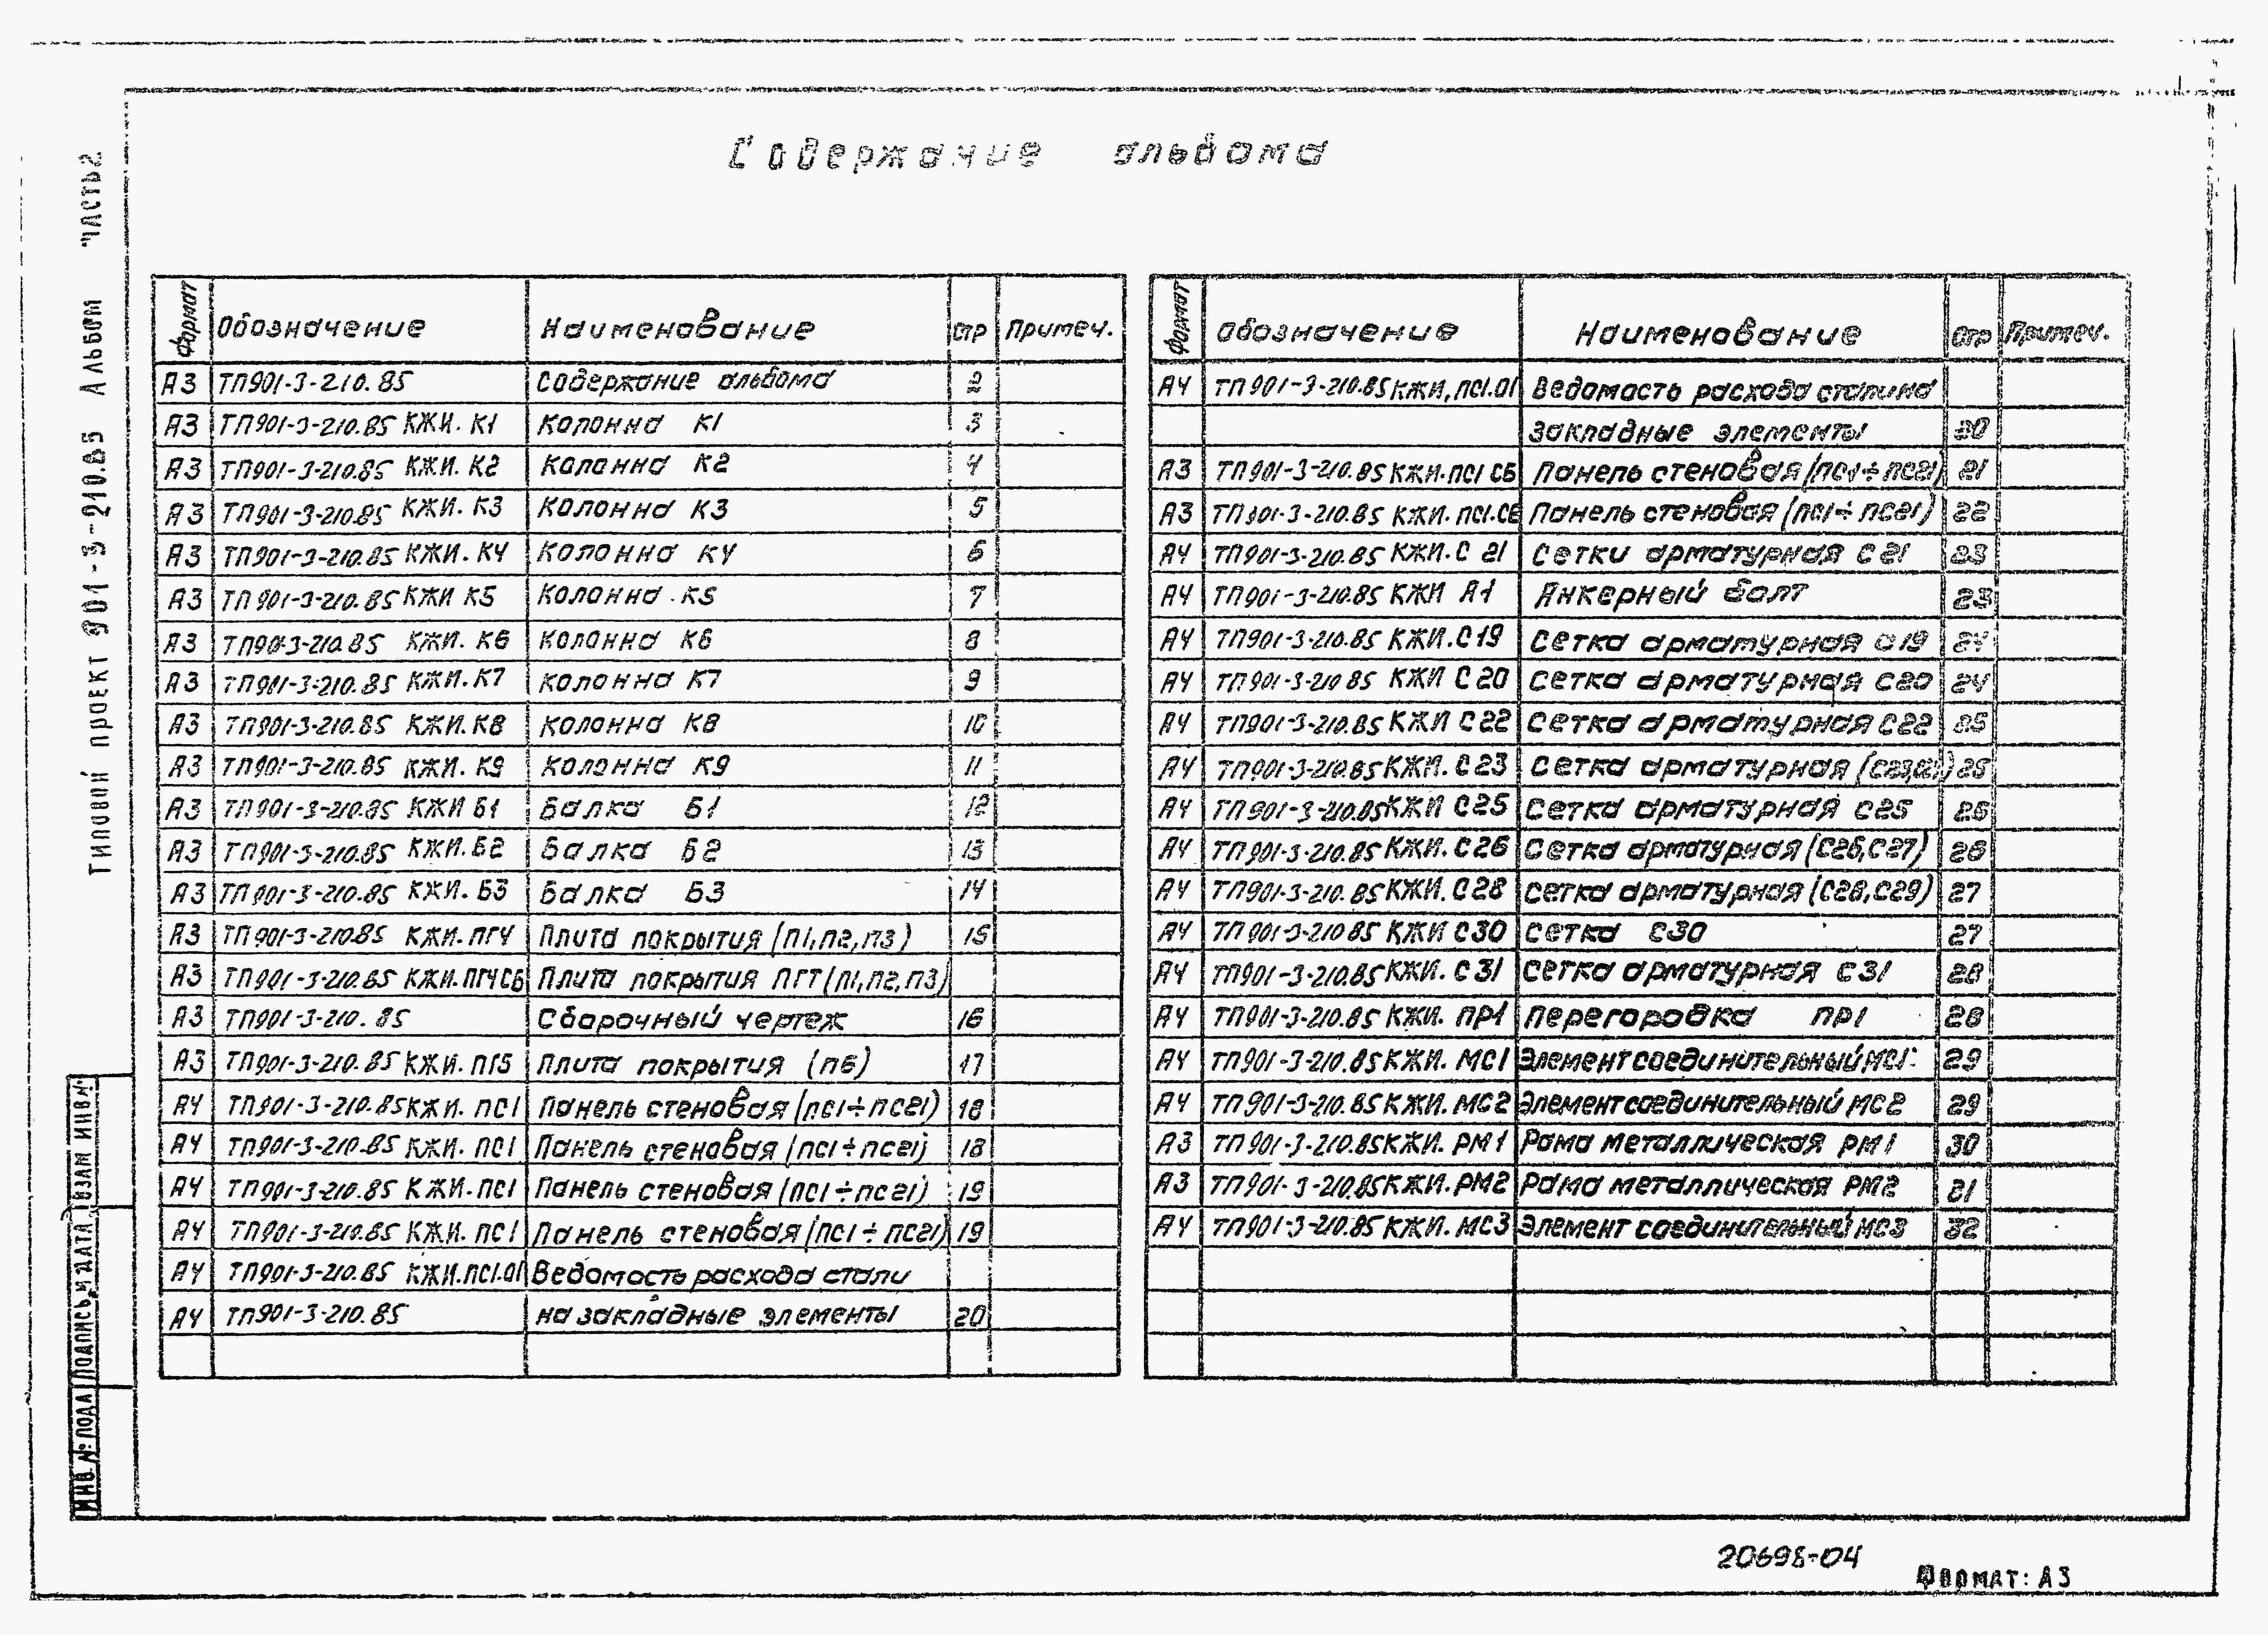 Содержание альбома
Типовой проект 901-3-210.85 Альбом Часть 2
Формат Обозначение Наименование Стр Примеч.
А3 ТП901-3-210.85 Содержание альбома 2
А3 ТП901-3-210.85 КЖИ. К1 Колонна К1 3
А3 ТП901-3-210.85 КЖИ. К2 Колонна К2 4
А3 ТП901-3-210.85 КЖИ. К3 Колонна К3 5
А3 ТП901-3-210.85 КЖИ. К4 Колонна К4 6
А3 ТП901-3-210.85 КЖИ К5 Колонна К5 7
А3 ТП901-3-210.85 КЖИ. К6 Колонна К6 8
А3 ТП901-3-210.85 КЖИ. К7 Колонна К7 9
А3 ТП901-3-210.85 КЖИ. К8 Колонна К8 10
А3 ТП901-3-210.85 КЖИ. К9 Колонна К9 11
А3 ТП901-3-210.85 КЖИ Б1 Балка Б1 12
А3 ТП901-3-210.85 КЖИ. Б2 Балка Б2 13
А3 ТП901-3-210.85 КЖИ. Б3 Балка Б3 14
А3 ТП901-3-210.85 КЖИ. ПГ4 Плита покрытия (П1,П2,П3) 15
А3 ТП901-3-210.85 КЖИ. ПГ4СБ Плита покрытия ПГТ(П1,П2,П3)
А3 ТП901-3-210.85 Сборочный чертеж 16
А3 ТП901-3-210.85 КЖИ. ПГ5 Плита покрытия (П6) 17
А4 ТП901-3-210.85 КЖИ. ПС1 Панель стеновая (ПС1÷ПС21) 18
А4 ТП901-3-210.85 КЖИ. ПС1 Панель стеновая (ПС1÷ПС21) 18
А4 ТП901-3-210.85 КЖИ. ПС1 Панель стеновая (ПС1÷ПС21) 19
А4 ТП901-3-210.85 КЖИ. ПС1 Панель стеновая (ПС1÷ПС21) 19
А4 ТП901-3-210.85 КЖИ.ПС1.01 Ведомость расхода стали
А4 ТП901-3-210.85 на закладные элементы 20
Формат Обозначение Наименование Стр Примеч.
А4 ТП901-3-210.85 КЖИ, ПС1.01 Ведомость расхода сталина
закладные элементы 20
А3 ТП901-3-210.85 КЖИ. ПС1 СБ Панель стеновая (ПС1÷ПС21) 21
А3 ТП901-3-210.85 КЖИ. ПС1.СБ Панель стеновая (ПС1÷ПС21) 22
А4 ТП901-3-210.85 КЖИ. С 21 Сетки арматурная С21 23
А4 ТП901-3-210.85 КЖИ А1 Анкерный болт 23
А4 ТП901-3-210.85 КЖИ. С19 Сетка арматурная С19 24
А4 ТП901-3-210 85 КЖИ С20 Сетка арматурная С20 24
А4 ТП901-3-210.85 КЖИ С22 Сетка арматурная С22 25
А4 ТП901-3-210.85 КЖИ. С23 Сетка арматурная 25
А4 ТП901-3-210.85 КЖИ С25 Сетка арматурная С25 26
А4 ТП901-3-210.85 КЖИ. С26 Сетка арматурная (С26,С27) 26
А4 ТП901-3-210.85 КЖИ. С28 Сетка арматурная (С28,С29) 27
А4 ТП901-3-210 85 КЖИ С30 Сетка С30 27
А4 ТП901-3-210.85 КЖИ. С31 Сетка арматурная С31 28
А4 ТП901-3-210.85 КЖИ. ПР1 Перегородка ПР1 28
А4 ТП901-3-210.85 КЖИ. МС1 Элемент соединительный МС1 29
А4 ТП901-3-210.85 КЖИ. МС2 Элемент соединительный МС2 29
А3 ТП901-3-210.85 КЖИ. РМ1 Рама металлическая РМ1 30
А3 ТП901-3-210.85 КЖИ. РМ2 Рама металлическая РМ2 21
А4 ТП901-3-210.85 КЖИ. МС3 Элемент соединительный МС3 32
Инв. № подл Подпись и дата Взам инв №
20698-04
Формат: А3